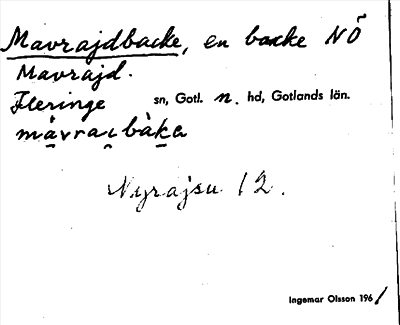 Mavrajdbacke, en backe NÖ
Mavrajd.
Fleringe sn, Gotl. n. hd, Gotlands län.
màvraįbàka
Nyrajsu 12.
Ingemar Olsson 1961